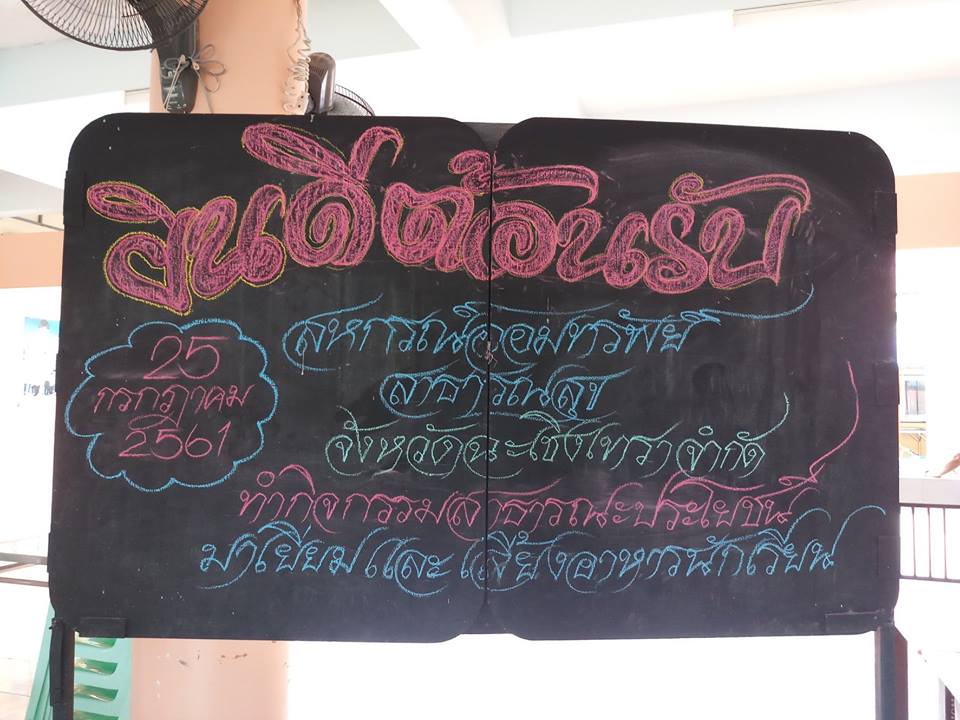 ยินดีต้อนรับ
25
กรกฎาคม
2561
สหกรณ์ออมทรัพย์
สาธารณสุข
จังหวัดฉะเชิงเทรา จำกัด
ทำกิจกรรมสาธารณะประโยชน์
มาเยี่ยม และ เลี้ยงอาหารนักเรียน